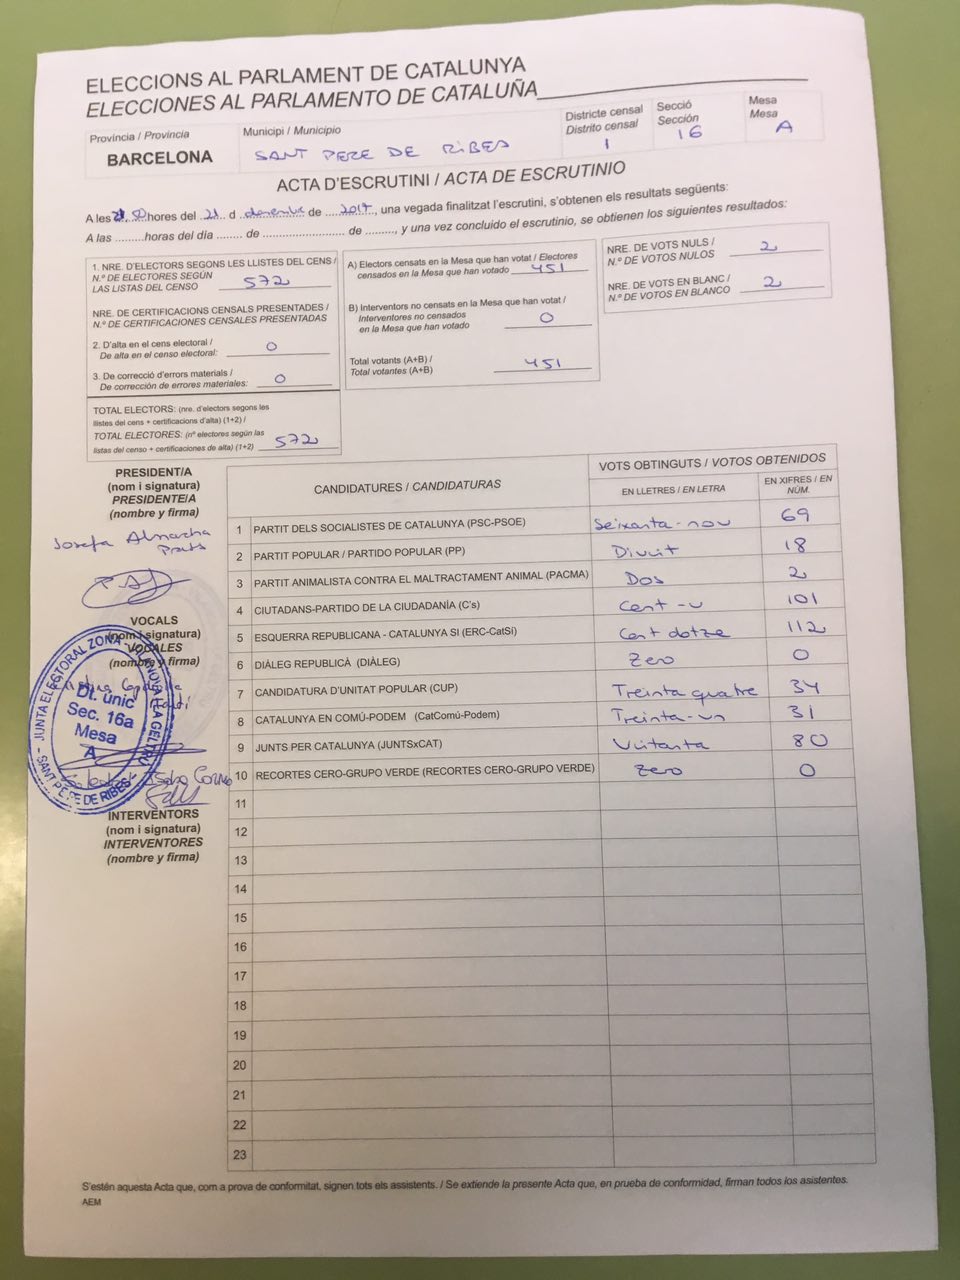 ELECCIONS AL PARLAMENT DE CATALUNYA
ELECCIONES AL PARLAMENTO DE CATALUÑA
Província / Provincia
BARCELONA
Municipi / Municipio
SANT PERE DE RIBES
Districte censal
Distrito censal
1
Secció
Sección
16
Mesa
Mesa
A
ACTA D'ESCRUTINI / ACTA DE ESCRUTINIO
A les hores del 21 d desembre de 2017, una vegada finalitzat l'escrutini, s'obtenen els resultats següents:
A las .........horas del día ........ de ......................... de ........., y una vez concluido el escrutinio, se obtienen los siguientes resultados:
1. NRE. D'ELECTORS SEGONS LES LLISTES DEL CENS /
N.º DE ELECTORES SEGÚN
LAS LISTAS DEL CENSO 572
NRE. DE CERTIFICACIONS CENSALS PRESENTADES /
N.º DE CERTIFICACIONES CENSALES PRESENTADAS
2. D'alta en el cens electoral /
De alta en el censo electoral: 0
3. De correcció d'errors materials /
De corrección de errores materiales: 0
TOTAL ELECTORS: (nre. d'electors segons les
llistes del cens + certificacions d'alta) (1+2) /
TOTAL ELECTORES: (nº electores según las
listas del censo + certificaciones de alta) (1+2) 572
A) Electors censats en la Mesa que han votat / Electores
censados en la Mesa que han votado 451
B) Interventors no censats en la Mesa que han votat /
Interventores no censados
en la Mesa que han votado 0
Total votants (A+B) /
Total votantes (A+B) 451
NRE. DE VOTS NULS /
N.º DE VOTOS NULOS 2
NRE. DE VOTS EN BLANC /
N.º DE VOTOS EN BLANCO 2
PRESIDENT/A
(nom i signatura)
PRESIDENTE/A
(nombre y firma)
Josefa Almacha
Prats
VOCALS
(nom i signatura)
VOCALES
(nombre y firma)
JUNTA ELECTORAL ZONA VILANOVA I LA GELTRÚ
SANT PERE DE RIBES
Dt. únic
Sec. 16a
Mesa
A
INTERVENTORS
(nom i signatura)
INTERVENTORES
(nombre y firma)
CANDIDATURES / CANDIDATURAS
VOTS OBTINGUTS / VOTOS OBTENIDOS
EN LLETRES / EN LETRA
EN XIFRES / EN
NÚM.
1 PARTIT DELS SOCIALISTES DE CATALUNYA (PSC-PSOE) Seixanta-nou 69
2 PARTIT POPULAR / PARTIDO POPULAR (PP) Divuit 18
3 PARTIT ANIMALISTA CONTRA EL MALTRACTAMENT ANIMAL (PACMA) Dos 2
4 CIUTADANS-PARTIDO DE LA CIUDADANÍA (C's) Cent-u 101
5 ESQUERRA REPUBLICANA - CATALUNYA SI (ERC-CatSí) Cent dotze 112
6 DIÀLEG REPUBLICÀ (DIÀLEG) Zero 0
7 CANDIDATURA D'UNITAT POPULAR (CUP) Treinta quatre 34
8 CATALUNYA EN COMÚ-PODEM (CatComú-Podem) Treinta-un 31
9 JUNTS PER CATALUNYA (JUNTSxCAT) Vuitanta 80
10 RECORTES CERO-GRUPO VERDE (RECORTES CERO-GRUPO VERDE) Zero 0
11
12
13
14
15
16
17
18
19
20
21
22
23
S'estén aquesta Acta que, com a prova de conformitat, signen tots els assistents. / Se extiende la presente Acta que, en prueba de conformidad, firman todos los asistentes.
AEM